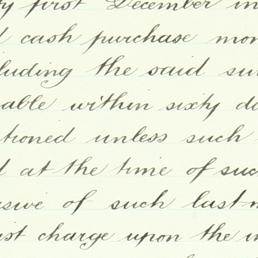 ty first December in
d cash purchase mon
luding the said su
able within sixty da
tioned unless such
d at the time of suc
sive of such last-m
ist charge upon the in